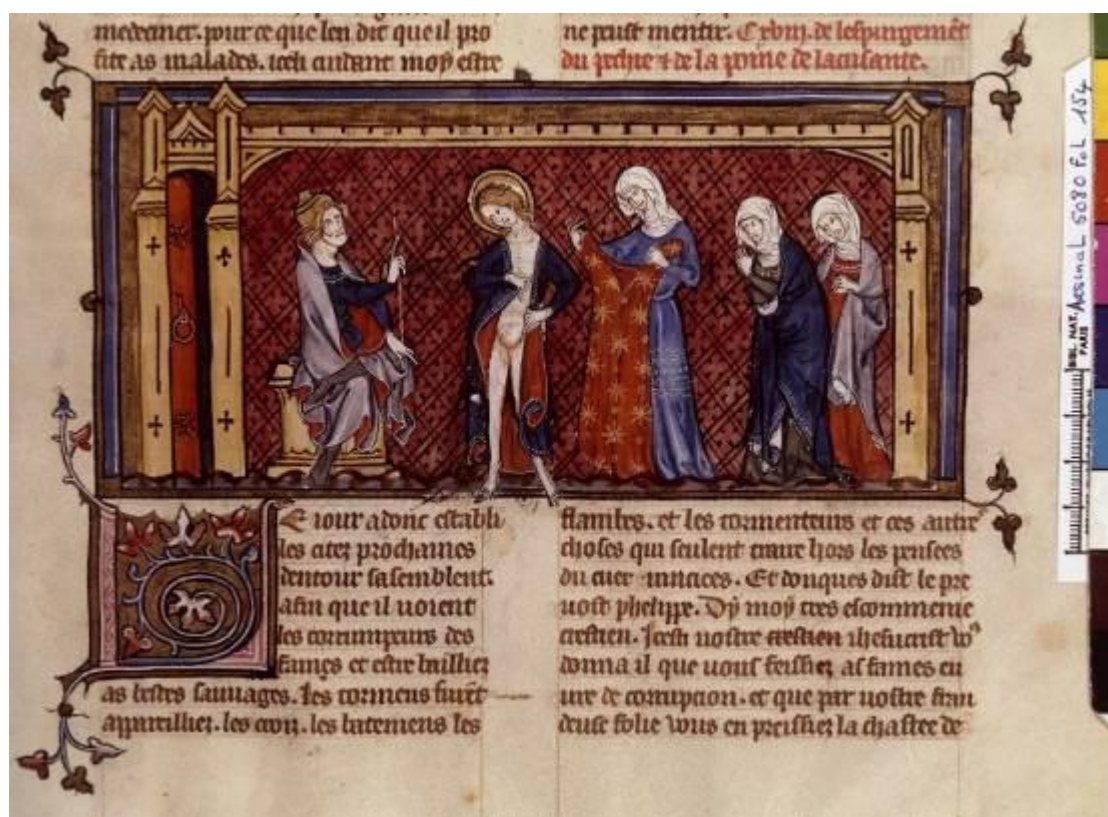 medecines. pour ce que len dit que il pro
fite as malades. iceli cuidant moy estre
ne peust mentir. C xviii. de lespurgemēt
du pechie ⁊ de la poine de lacusante.
E iour adonc establi
les citez prochaines
dentour sasemblent.
afin que il uoient
les corrumpeurs des
fames et estre bailliez
as bestes sauuages. les tormens furēt
appareilliez. les croiz. les batemens les
flambes. et les tormenteurs et ces autre
choses qui seulent traire hors les pensees
du cuer Et donques dist le pre
uost phelippe. Dy moy tres escommenie
crestien. Icest uostre crestien ihesucrist vous
donna il que uous feissiez as fames cu
ure de corrupcion. et que par uostre frau
deuse folie vous en preissiez la chastee de
BIBL. NAT. PARIS
Arsenal 5080 Fol 154